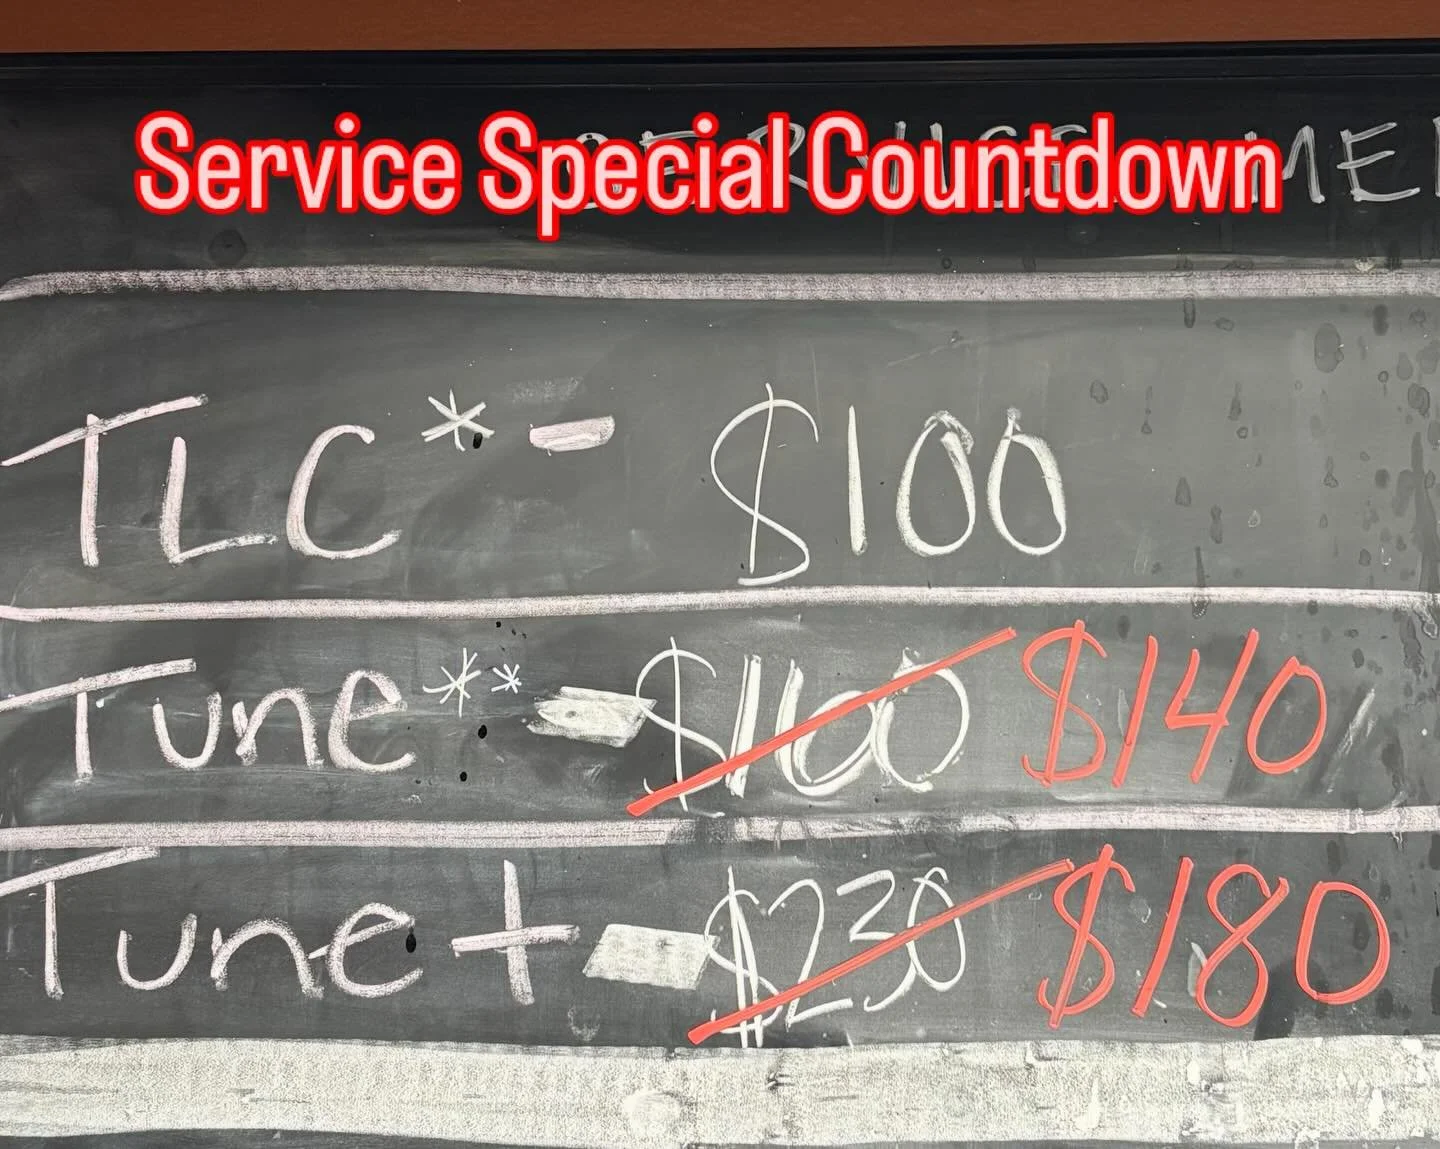 Service Special Countdown
SERVICE ME
TLC* - $100
Tune** - $160 $140
Tune + - $230 $180